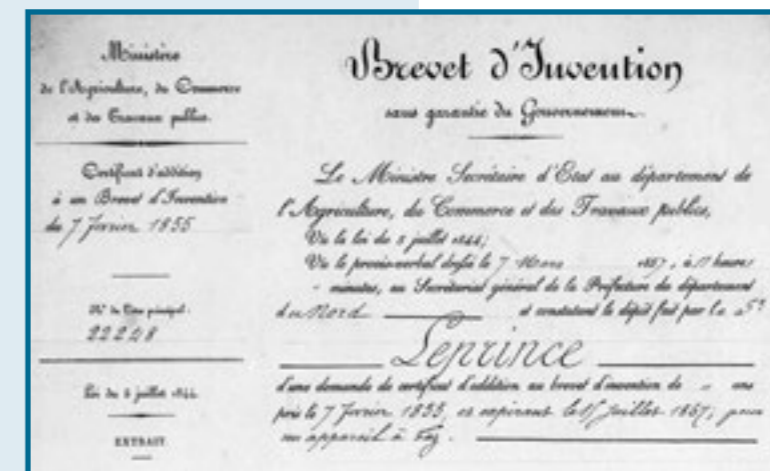 Ministère
de l'Agriculture, du Commerce
et des Travaux publics.
Certificat d'addition
à un Brevet d'Invention
du 7 février 1855
N° du Titre principal.
22228
Loi du 5 juillet 1844.
EXTRAIT
Brevet d'Invention
sans garantie du Gouvernement.
Le Ministre Secrétaire d'État au département de
l'Agriculture, du Commerce et des Travaux publics,
Vu la loi du 5 juillet 1844;
Vu le procès-verbal dressé le 7 Mars 1857, à 11 heures
minutes, au Secrétariat général de la Préfecture du département
du Nord et constatant le dépôt fait par le S.
Leprince
d'une demande de certificat d'addition au brevet d'invention de ans
pris le 7 février 1855, et expirant le juillet 1867, pour
un appareil à